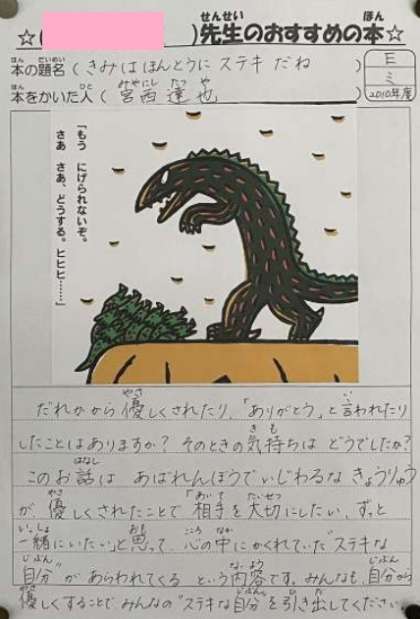 ☆( )先生のおすすめの本☆
本の題名 ( きみは ほんとうに ステキ だね )
本をかいた人 ( 宮西 達也 )
E
ミ
2010年度
「もう にげられないぞ。
さあ さあ、どうする。ヒヒヒ……」
だれかから優しくされたり、「ありがとう」と言われたり
したことはありますか? そのときの気持ちは どうでしたか?
このお話は あばれんぼうでいじわるな きょうりゅう
が、優しくされたことで「相手を大切にしたい、ずっと
一緒にいたい」と思って、心の中にかくれていた"ステキな
自分"が あらわれてくる という内容です。みんなも、自分から
優しくすることで みんなの"ステキな自分"を引き出してください